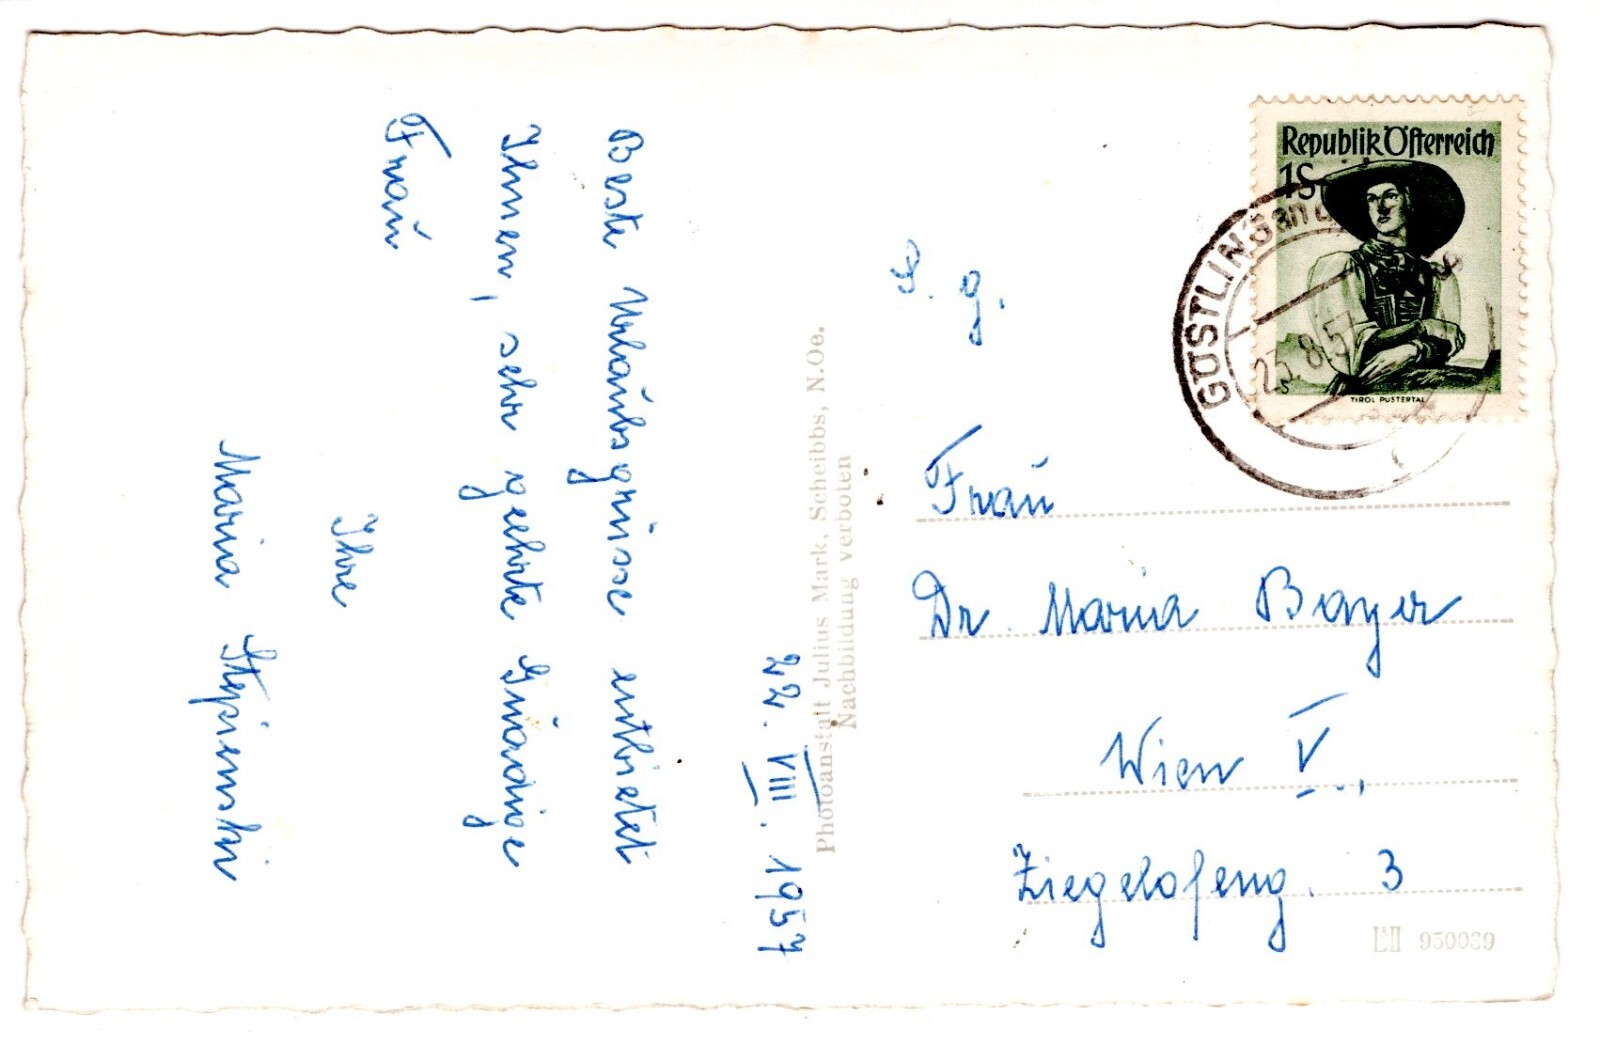 22. VIII. 1957
Beste Urlaubsgrüsse entbietet
Ihnen, sehr geehrte Gnädige
Frau
Ihre
Maria
Photoanstalt Julius Mark, Scheibbs, N.Oe.
Nachbildung verboten
Republik Österreich
1S
TIROL PUSTERTAL
GÖSTLING an d
23.8.57
S. g.
Frau
Dr. Maria Bayer
Wien V.,
Ziegelofeng. 3
930039